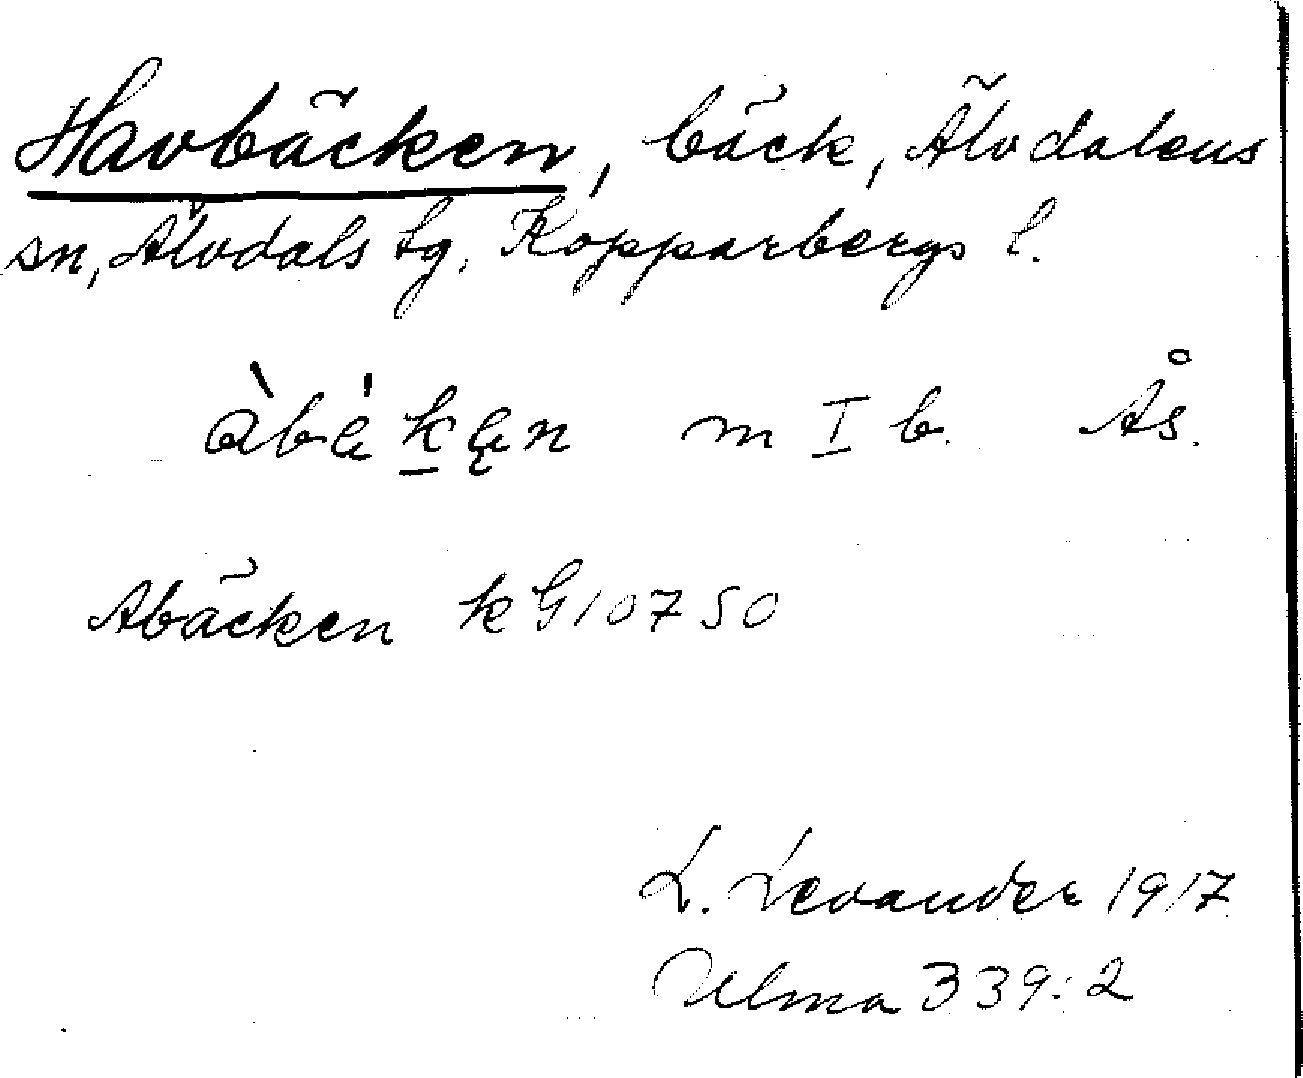 Havbäcken, bäck, Älvdalens
sn, Älvdals tg, Kopparbergs l.
àbɛ̀kɛn m I b. Ås.
Abäcken kG10750
L. Levander 1917
Ulma 339:2